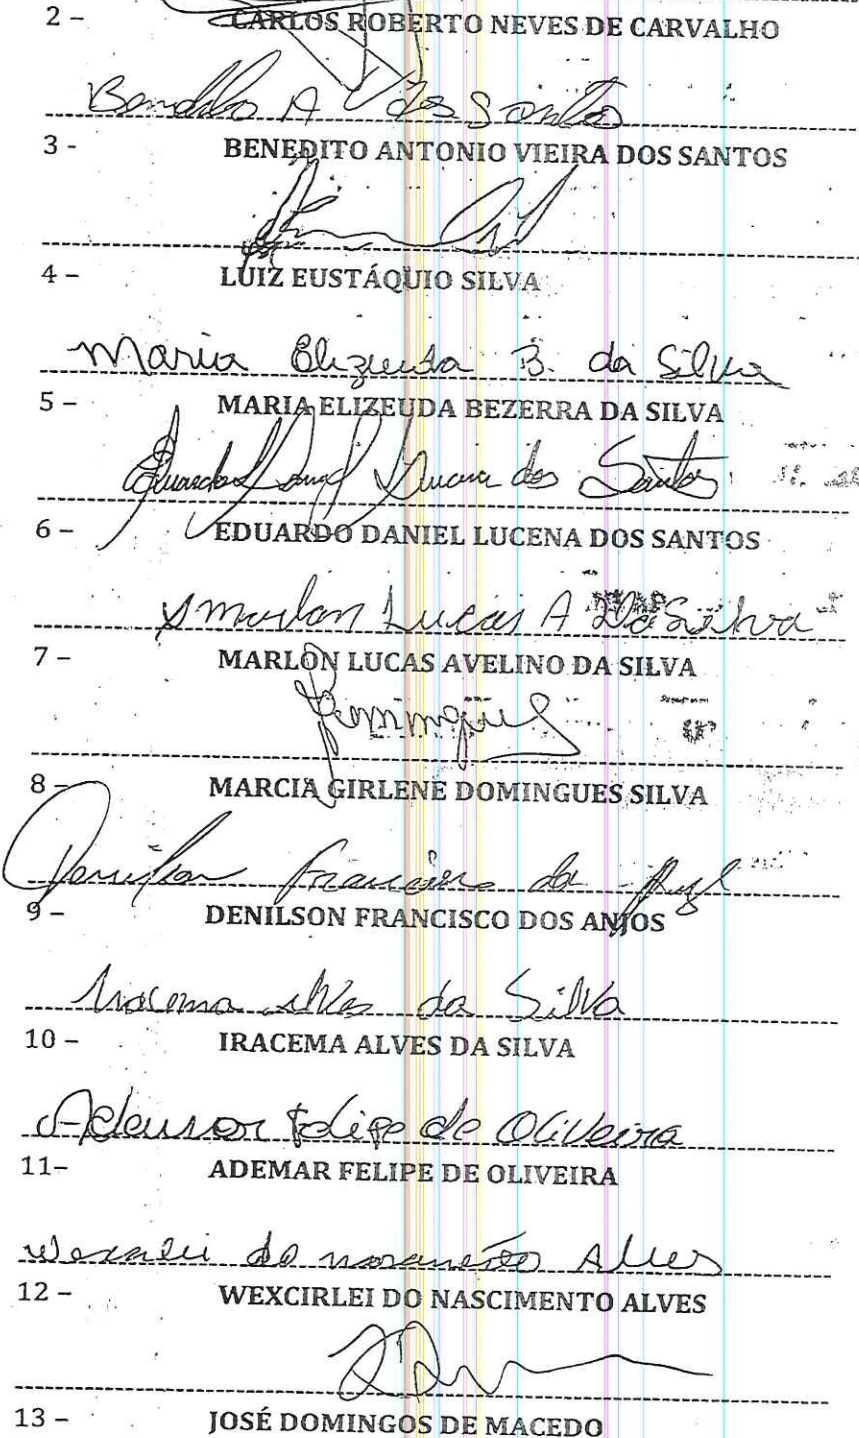 2 – CARLOS ROBERTO NEVES DE CARVALHO
Benedito A V dos Santos
3 - BENEDITO ANTONIO VIEIRA DOS SANTOS
4 – LUIZ EUSTÁQUIO SILVA
Maria Elizeuda B. da Silva
5 – MARIA ELIZEUDA BEZERRA DA SILVA
Eduardo Daniel Lucena dos Santos
6 – EDUARDO DANIEL LUCENA DOS SANTOS
Marlon Lucas A Da Silva
7 – MARLON LUCAS AVELINO DA SILVA
Domingues
8 – MARCIA GIRLENE DOMINGUES SILVA
Denilson Francisco dos Anjos
9 – DENILSON FRANCISCO DOS ANJOS
Iracema Alves da Silva
10 – IRACEMA ALVES DA SILVA
Ademar Felipe de Oliveira
11– ADEMAR FELIPE DE OLIVEIRA
do Alves
12 – WEXCIRLEI DO NASCIMENTO ALVES
13 – JOSÉ DOMINGOS DE MACEDO